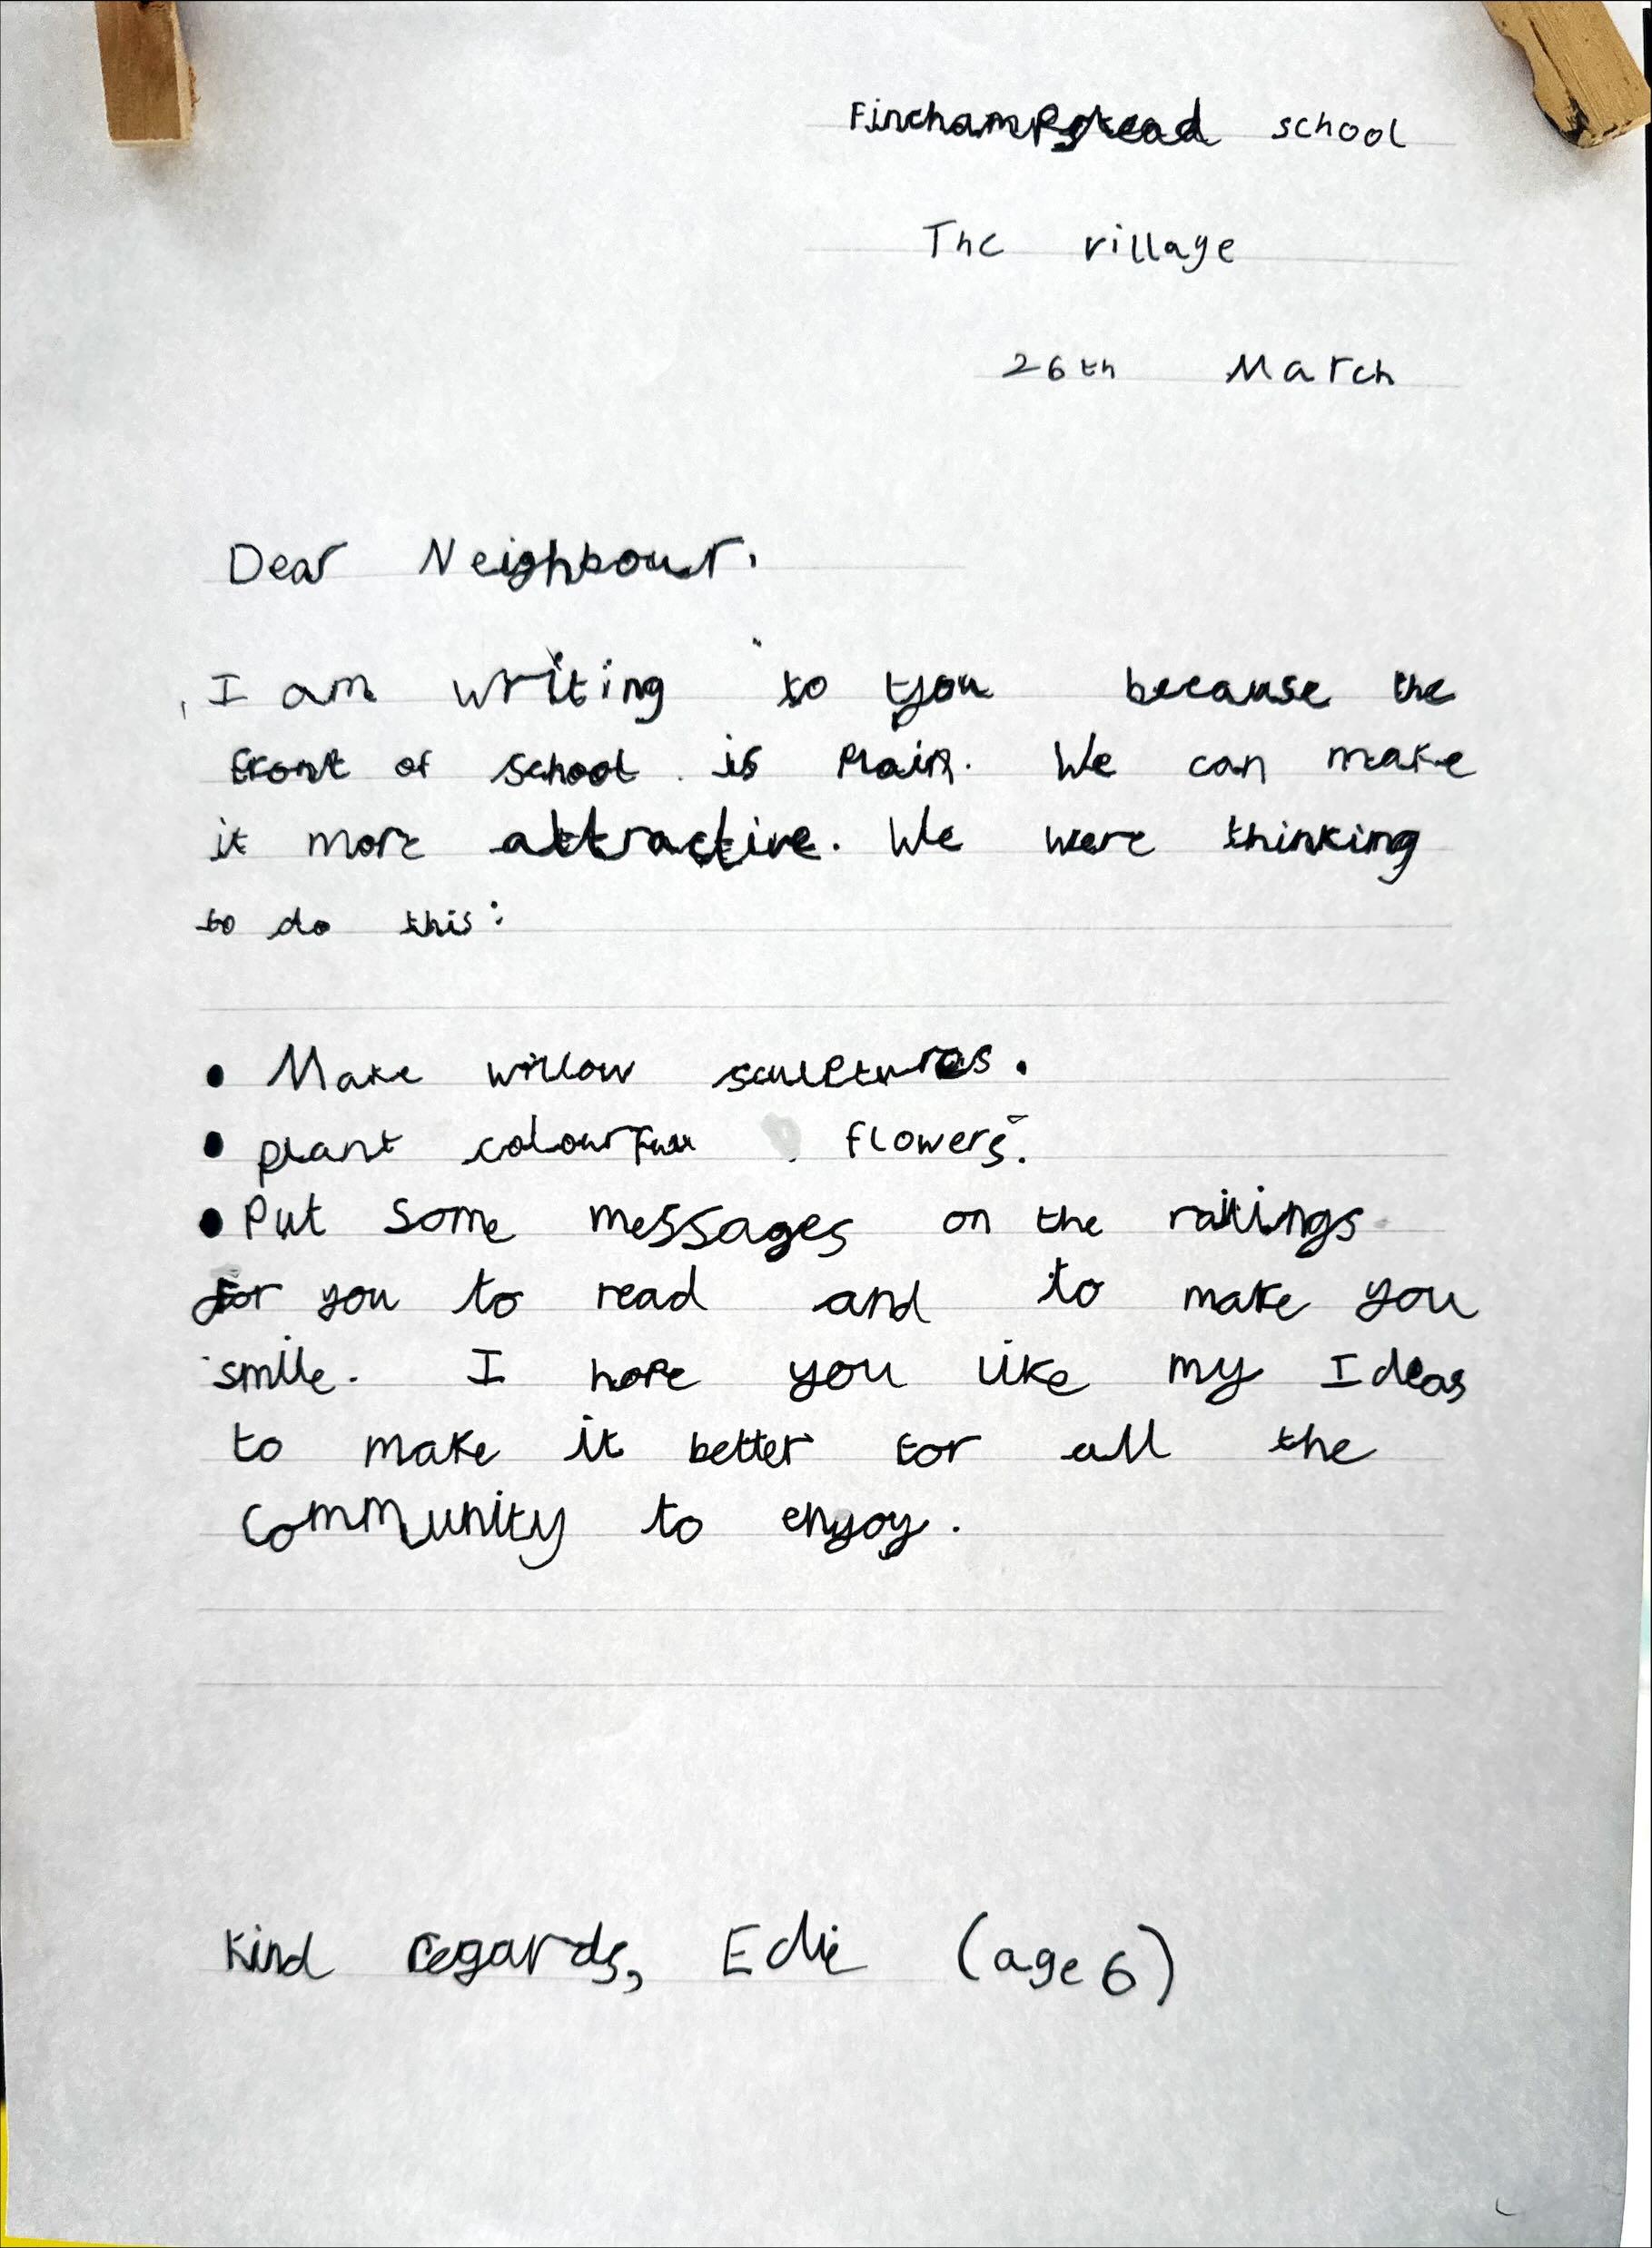 Finchampstead school
The village
26th March
Dear Neighbour.
I am writing to you because the
front of school is plain. We can make
it more attractive. We were thinking
to do this:
• Make willow sculptures.
• plant colourfull flowers.
• Put some messages on the railings
for you to read and to make you
smile. I hope you like my Ideas
to make it better for all the
community to enjoy.
Kind regards, Edie (age 6)